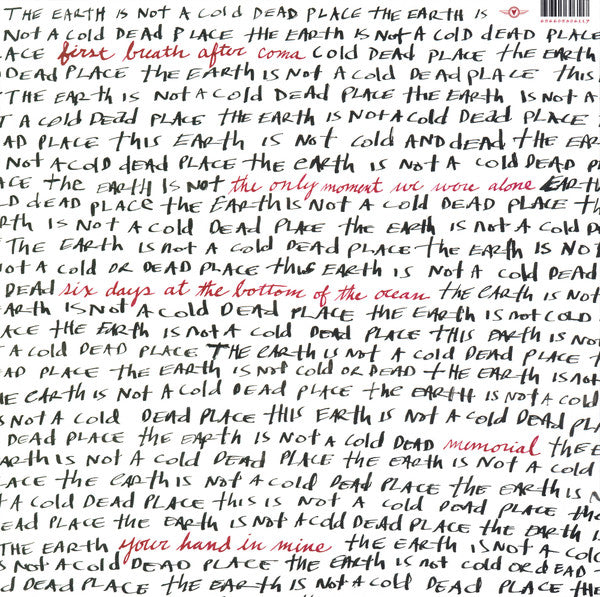 THE EARTH IS NOT A COLD DEAD PLACE THE EARTH IS
NOT A COLD DEAD PLACE THE EARTH IS NOT A COLD DEAD PLACE
ACE first breath after coma COLD DEAD PLACE THE EARTH
DEAD PLACE THE EARTH IS NOT A COLD DEAD PLACE THIS
THE EARTH IS NOT A COLD DEAD PLACE THE EARTH IS NOT A
T A COLD DEAD PLACE THE EARTH IS NOT A COLD DEAD PLACE
AD PLACE THIS EARTH IS NOT COLD AND DEAD THE EAR
NOT A COLD DEAD PLACE THE EARTH IS NOT A COLD DEAD P
ACE THE EARTH IS NOT the only moment we were alone EARTH
LD DEAD PLACE THE EARTH IS NOT A COLD DEAD PLACE THE
RTH IS NOT A COLD DEAD PLACE THE EARTH IS NOT A COLD
THE EARTH IS NOT A COLD DEAD PLACE THE EARTH IS NO
NOT A COLD OR DEAD PLACE THIS EARTH IS NOT A COLD DEAD
DEAD six days at the bottom of the ocean THE EARTH IS NOT
ARTH IS NOT A COLD DEAD PLACE THE EARTH IS NOT COLD
ACE THE EARTH IS NOT A COLD DEAD PLACE THIS EARTH IS NO
T A COLD DEAD PLACE THE EARTH IS NOT A COLD DEAD PLACE T
AD PLACE THE EARTH IS NOT COLD OR DEAD THE EARTH IS NOT
HE EARTH IS NOT A COLD DEAD PLACE THE EARTH IS NOT A COLD
S NOT A COLD DEAD PLACE THIS EARTH IS NOT A COLD DEAD PL
DEAD PLACE THE EARTH IS NOT A COLD DEAD memorial THE E
ARTH IS NOT A COLD DEAD PLACE THE EARTH IS NOT A COLD
ACE THE EARTH IS NOT A COLD DEAD PLACE THE EARTH IS N
T A COLD DEAD PLACE THIS IS NOT A COLD DEAD PLACE THE
DEAD PLACE THE EARTH IS NOT A COLD DEAD PLACE THE EARTH IS
THE EARTH your hand in mine THE EARTH IS NOT A COLD
DEAD PLACE THE EARTH IS NOT A COLD DEAD PLACE THE EARTH IS NOT COLD OR DEAD THE
D DEAD PLACE THE EARTH IS NOT A COLD DEAD PLACE THE EARTH